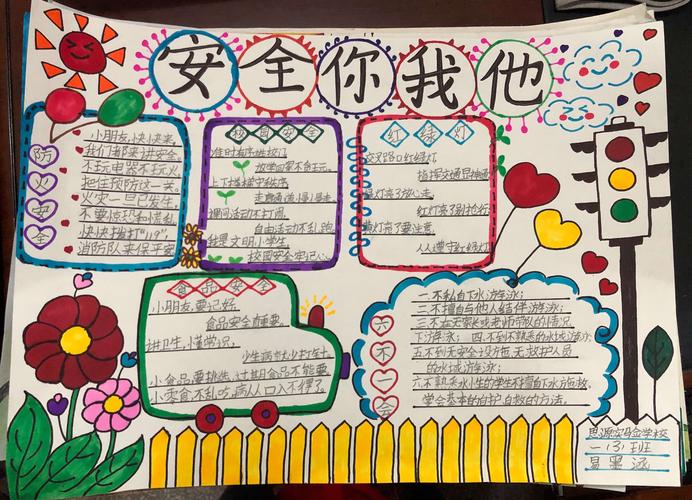 安全你我他
防火安全
小朋友,快快来,
我们都来讲安全。
不玩电器不玩火,
把住预防这一关。
火灾一旦已发生,
不要惊恐和慌乱
快快拨打"119",
消防队来保平安
校园安全
准时有序进校门,
放学回家不在玩。
上下楼梯守秩序
走廊通道慢慢走
课间活动不打闹,
自由活动不乱跑
我是文明小学生
校园安全牢记心
红绿灯
交叉路口红绿灯
指挥交通显神通
绿灯亮了放心走
红灯亮了别抢行
黄灯亮了要注意
人人遵守红绿灯
食品安全
小朋友,要记好,
食品安全有重要。
讲卫生,懂常识,
少生病来少打针
小食品,要挑选,过期食品不能要
小零食,不乱吃,病从口入不得了。
六不一会
一不私自下水游泳;
二不擅自与他人结伴游泳;
三不在无家长或老师带队的情况
下游泳; 四不到不熟悉的水域游泳;
五不到无安全设施、无救护人员
的水域游泳;
六不熟悉水性的学生不擅自下水施救。
学会基本的自护、自救的方法。
思源实验学校
一(3)班
易墨涵